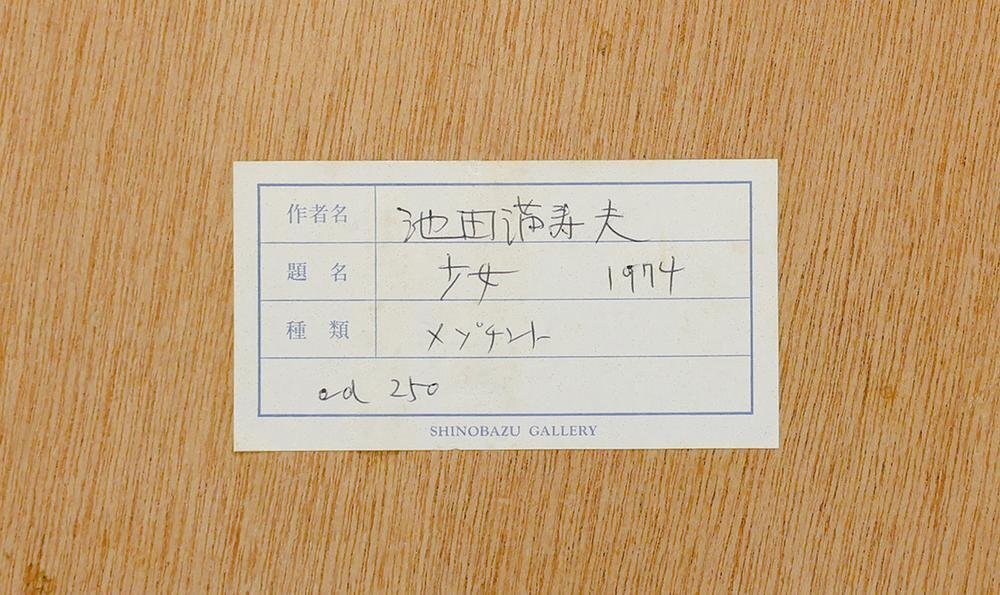 作者名 池田満寿夫
題名 少女 1974
種類 メゾチント
ed 250
SHINOBAZU GALLERY